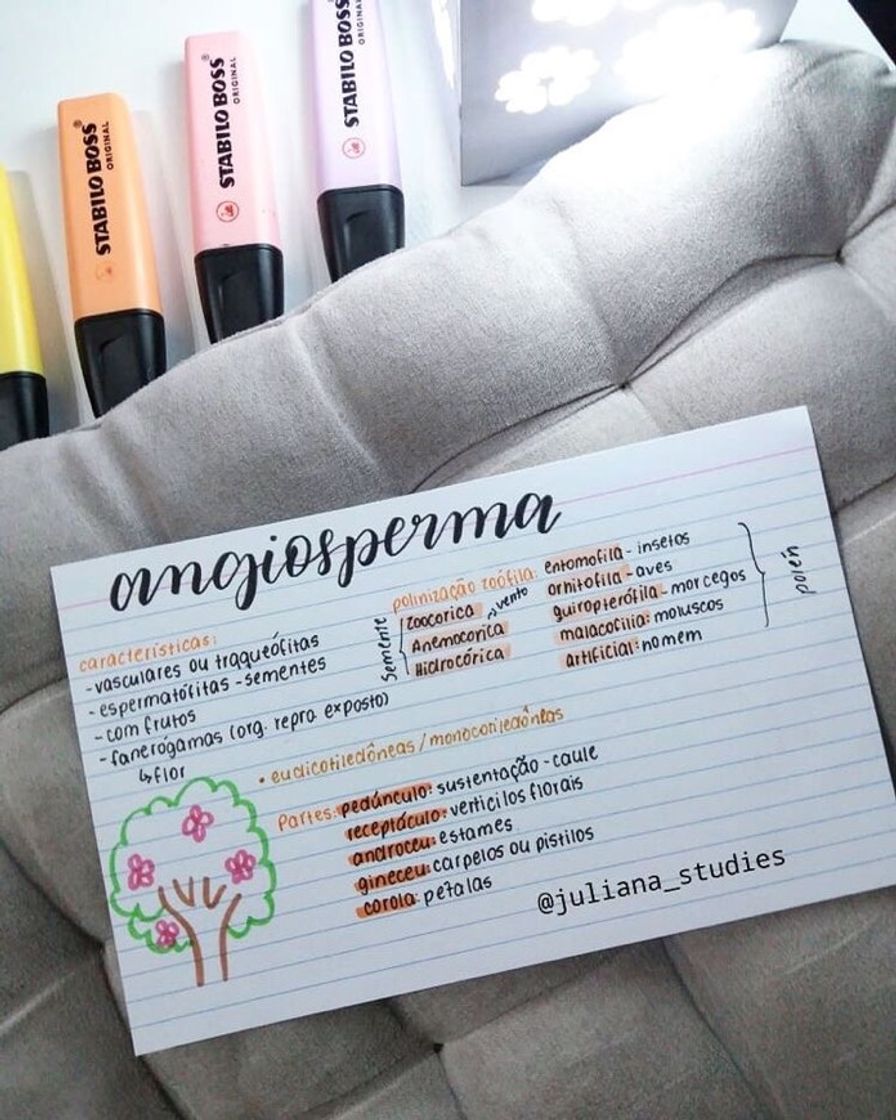 STABILO BOSS®
ORIGINAL
STABILO BOSS®
ORIGINAL
STABILO BOSS
ORIGINAL
angiosperma
características:
-vasculares ou traqueófitas
-espermatófitas -sementes
-com frutos
-fanerógamas (org. repro. exposto)
↳flor
polinização zoófila:
semente
zoocorica
Anemocorica
→vento
Hidrocórica
entomofila- insetos
orhitofila-aves
quiropterófila- morcegos
malacofilia: moluscos
artificial:nomem
polén
• eudicotiledôneas / monocotiledôneas
Partes: pedúnculo: sustentação - caule
receptáculo: verticilos florais
androceu: estames
gineceu: carpelos ou pistilos
corola: petalas
@juliana_studies